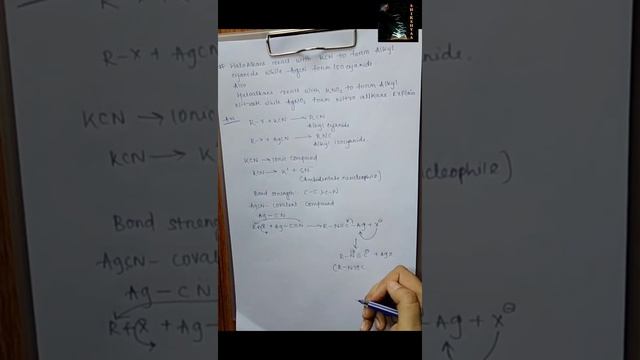 Haloalkanes react with KCN to form Alkyl
cyanide while AgCN form Isocyanide.
Also
Haloalkans react with KNO₂ to form Alkyl
nitrite while AgNO₂ form nitro alkane. Explain
Ans
R-X + KCN → RCN
Alkyl cyanide
R-X + AgCN → RNC
Alkyl isocyanide.
KCN → Ionic compound
KCN → K⁺ + CN⁻
(Ambidentate nucleophile)
Bond strength C-C > C-N
AgCN- covalent compound
Ag-CN
R-X + Ag-C≡N → R-N≡C-Ag + X⊖
R-N≡C + AgX
(R-N≡C